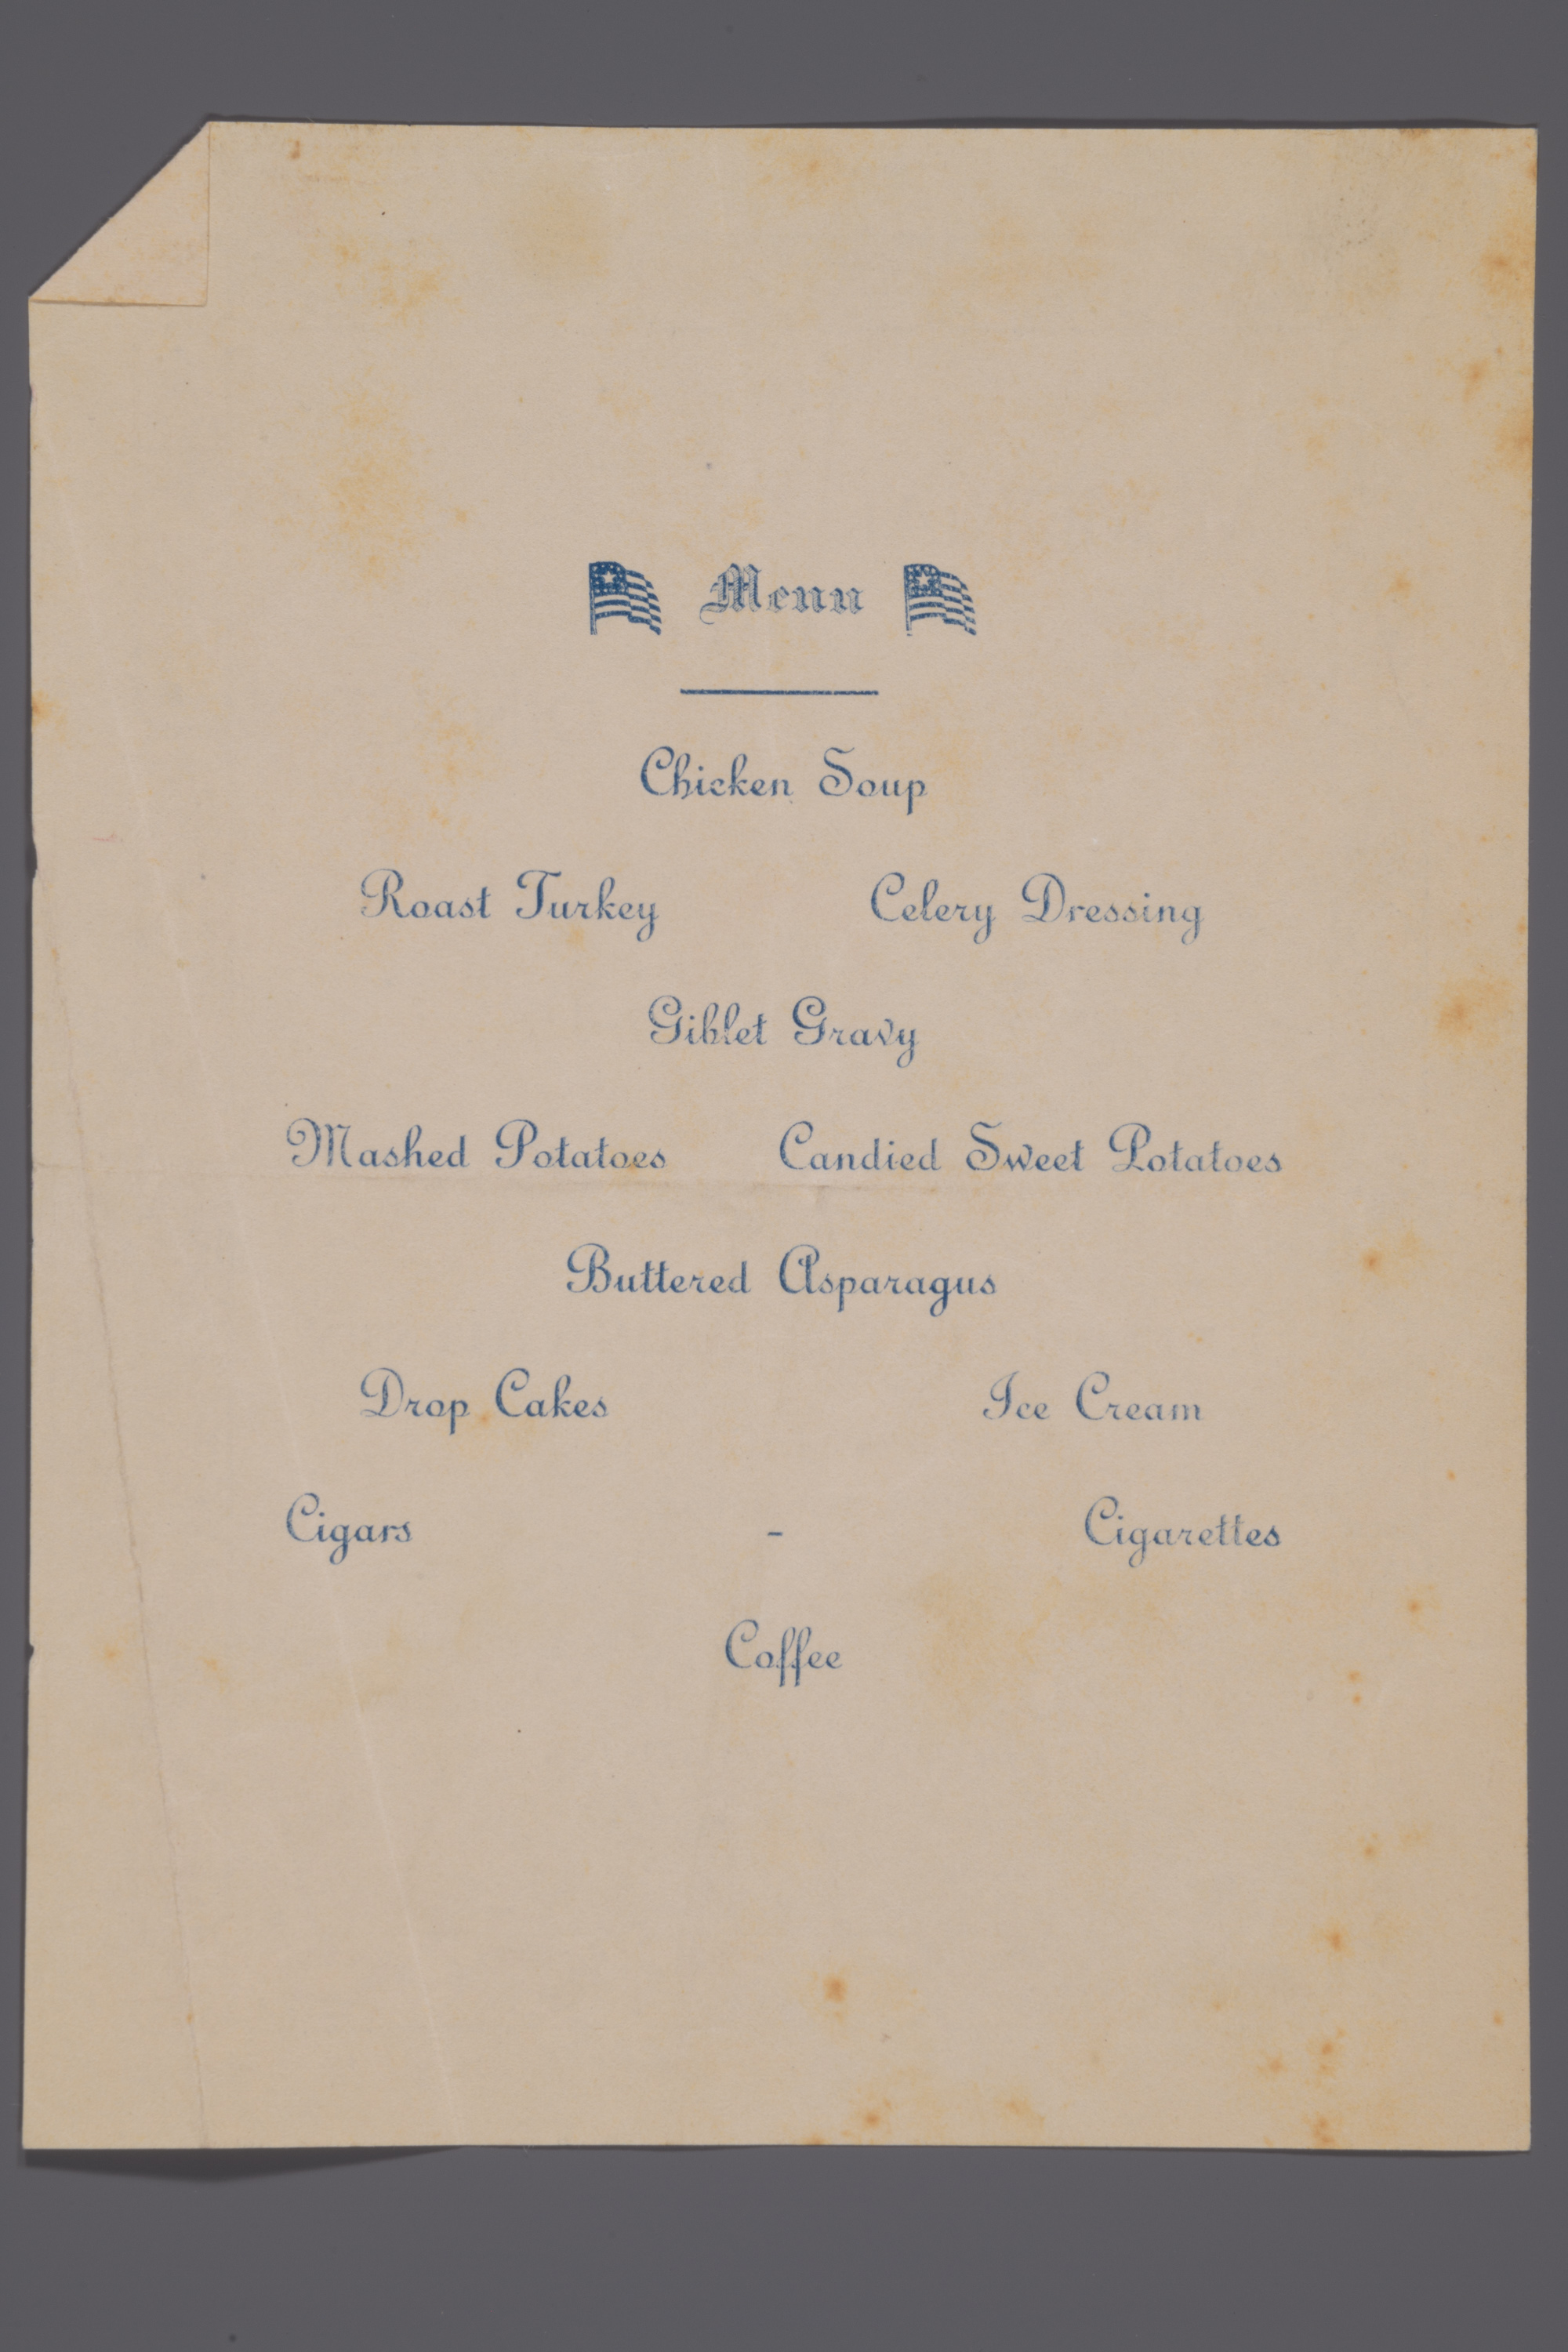 Menu
Chicken Soup
Roast Turkey Celery Dressing
Giblet Gravy
Mashed Potatoes Candied Sweet Potatoes
Buttered Asparagus
Drop Cakes Ice Cream
Cigars - Cigarettes
Coffee